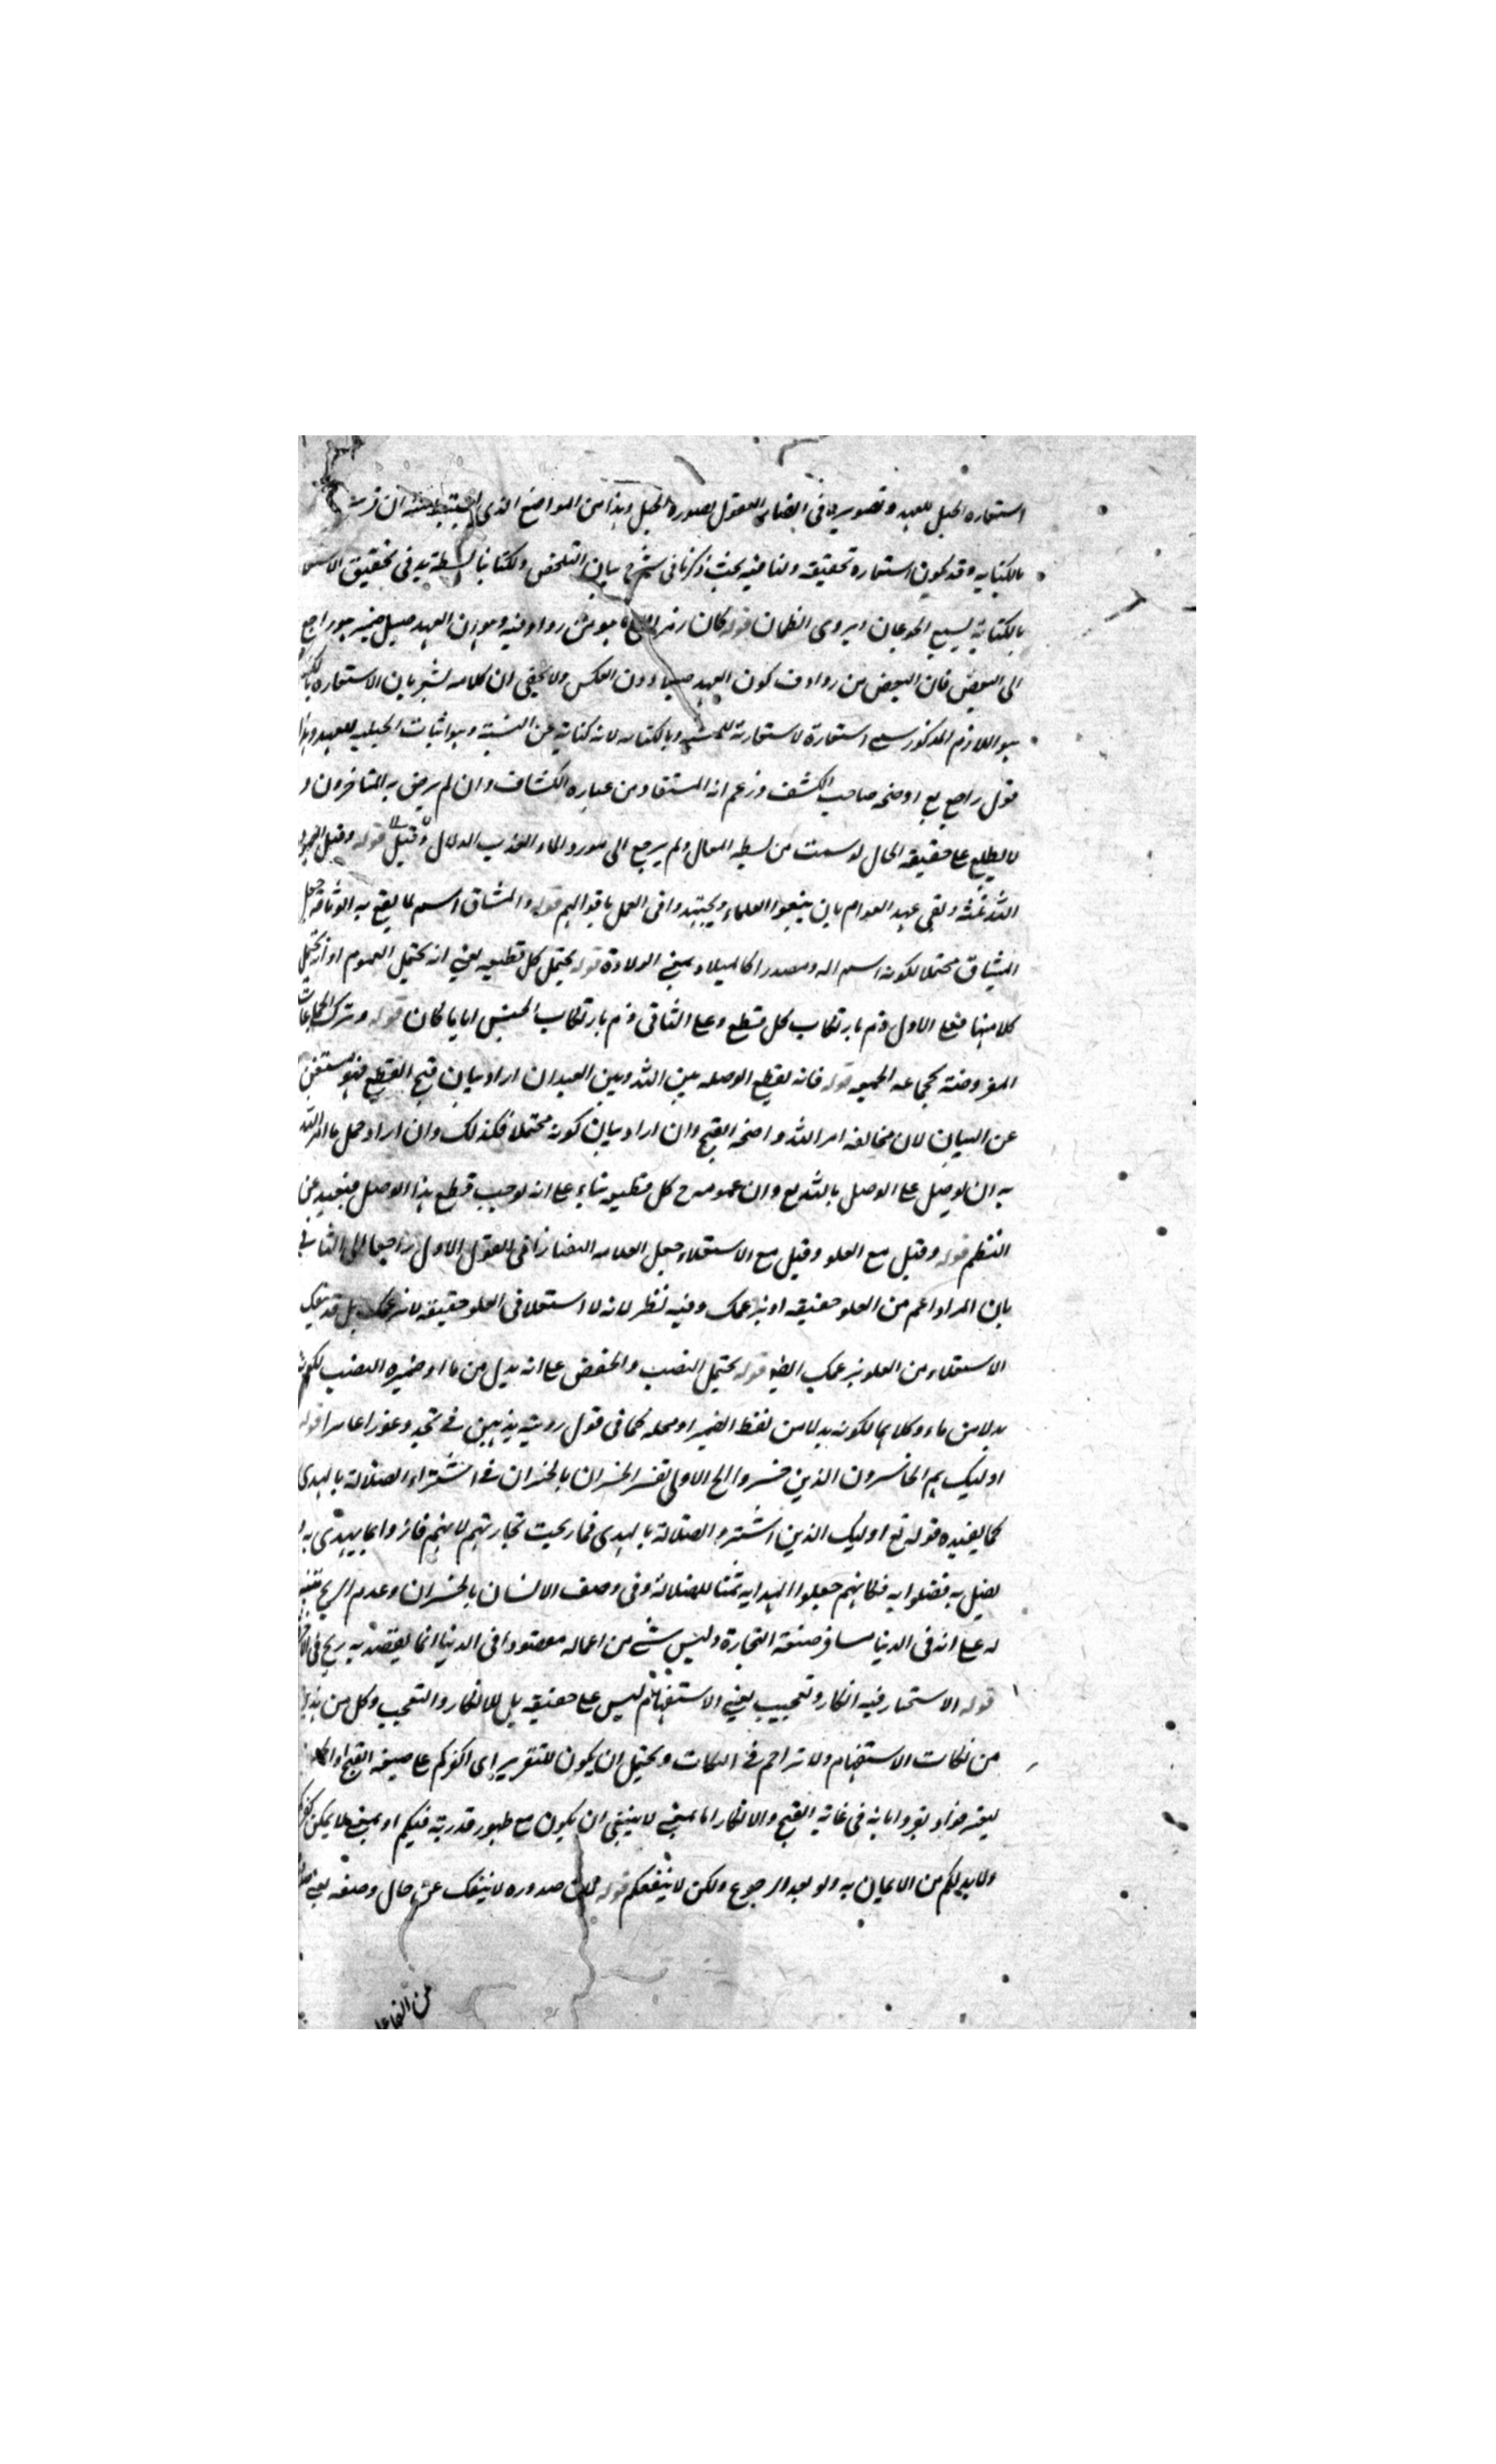 استعاره الحبل للعهد وتصويره فى انظار العقول بصورة الحبل وهذا من المواضع الذى ان قرينة
بالكنايه وقد يكون استعارة تحقيقه ولنا فيه بحث ذكرنا فى شرح بيان التلخيص ولكتابنا بسطة يد فى تحقيق الاستعا
بالكناية يسبع الجوعان ويروى الظمان قوله كان رمزا الى ما هو من روادفه وهو ان العهد حبل ضمير هو راجع
الى البعض فان البعض من روادف كون العهد حبلا دون العكس ولا يخفى ان كلامه يشير بان الاستعاره
هو اللازم المذكور سمى استعارة لاستعارته للمشبه وبالكنايه لانه كناية عن النسبة وهو اثبات الحبلية للعهد وهذا
قول راجع اوضحه صاحب الكشف وزعم انه المستفاد من عباره الكشاف وان لم يرض به المتاخرون و
لا يطلع على حقيقه الحال لو سمت من بسطه المقال ولم يرجع الى مورد الماء العذب الدلال قوله وقيل
الله ثلثه وبقى عهد العوام بان يتبعوا العلماء ويجتهدوا فى العمل باقوالهم قوله والمشاق اسم لما يقع به الوثاقه جعل
الميثاق محتملا لكونه اسم اله ومصدرا كالميلاد بمعنى الولادة قوله يحتمل كل قطيعه يعنى انه يحتمل العموم او انه يحتمل
كلا منها فعلى الاول ذم بارتكاب كل قطع وعلى الثانى ذم بارتكاب الجنس اياما كان قوله وترك الجماعات
المفروضة كجماعه الجمعه قوله فانه يقطع الوصله بين الله وبين العبد ان اراد بيان قبح القطع فهو مستغن
عن البيان لان مخالفه امر الله واضحه القبح وان اراد بيان كونه محتملا فكذلك وان اراد حمل ما امر الله
به ان يوصل على الوصل بالله تع وان عمومه ح كل قطيعه بناء على انه يوجب قطع هذا الوصل فبعيد عن
النظم قوله وقيل مع العلو وقيل مع الاستعلاء جعل العلامه التفتازانى القول الاول راجعا الى الثانى
بان المراد اعم من العلو حقيقه او بزعمك وفيه نظر لانه لا استعلا فى العلو حقيقه لا بزعمك بل قد ينفك
الاستعلاء من العلو بزعمك ايضا قوله يحتمل النصب والخفض على انه بدل من ما او ضميره النصب لكونه
بدلا من ما وكلاهما لكونه بدلا من لفظ الضمير او محله كما فى قول روبة يذهبن فى نجد وغورا غايرا قوله
اوليك هم الخاسرون الذين خسروا الخ الاولى تفسر الخسران بالخسران فى اشتراء الضلالة بالهدى
كما يفيده قوله تع اوليك الذين اشتروا الضلالة بالهدى فما ربحت تجارتهم لانهم فازوا بما يهتدى به
يضل به فضلوا به فكانهم جعلوا الهدايه ثمنا للضلالة وفى وصف الانسان بالخسران وعدم الربح تنبيه
له على انه فى الدنيا مسافر صنعة التجارة وليس شئ من اعماله مقصودا فى الدنيا انما يقصد به ربح فى
قوله الاستخبار فيه انكار وتعجيب يعنى الاستفهام ليس على حقيقه بل للانكار والتعجيب وكل من هذين
من نكات الاستفهام ولا تزاحم فى النكات ويحتمل ان يكون للتقرير اى اكفركم على صيغه القبح
ليعترفوا ويقروا بانه فى غايه القبح والانكار اما بمعنى لا ينبغى ان يكون مع ظهور قدرته فيكم او بمعنى لا يمكن
ولا بد لكم من الايمان به ولو بعد الرجوع ولكن لا ينفعكم قوله لان صدوره لا ينفك عن حال وصفه يعنى
من الفاعل